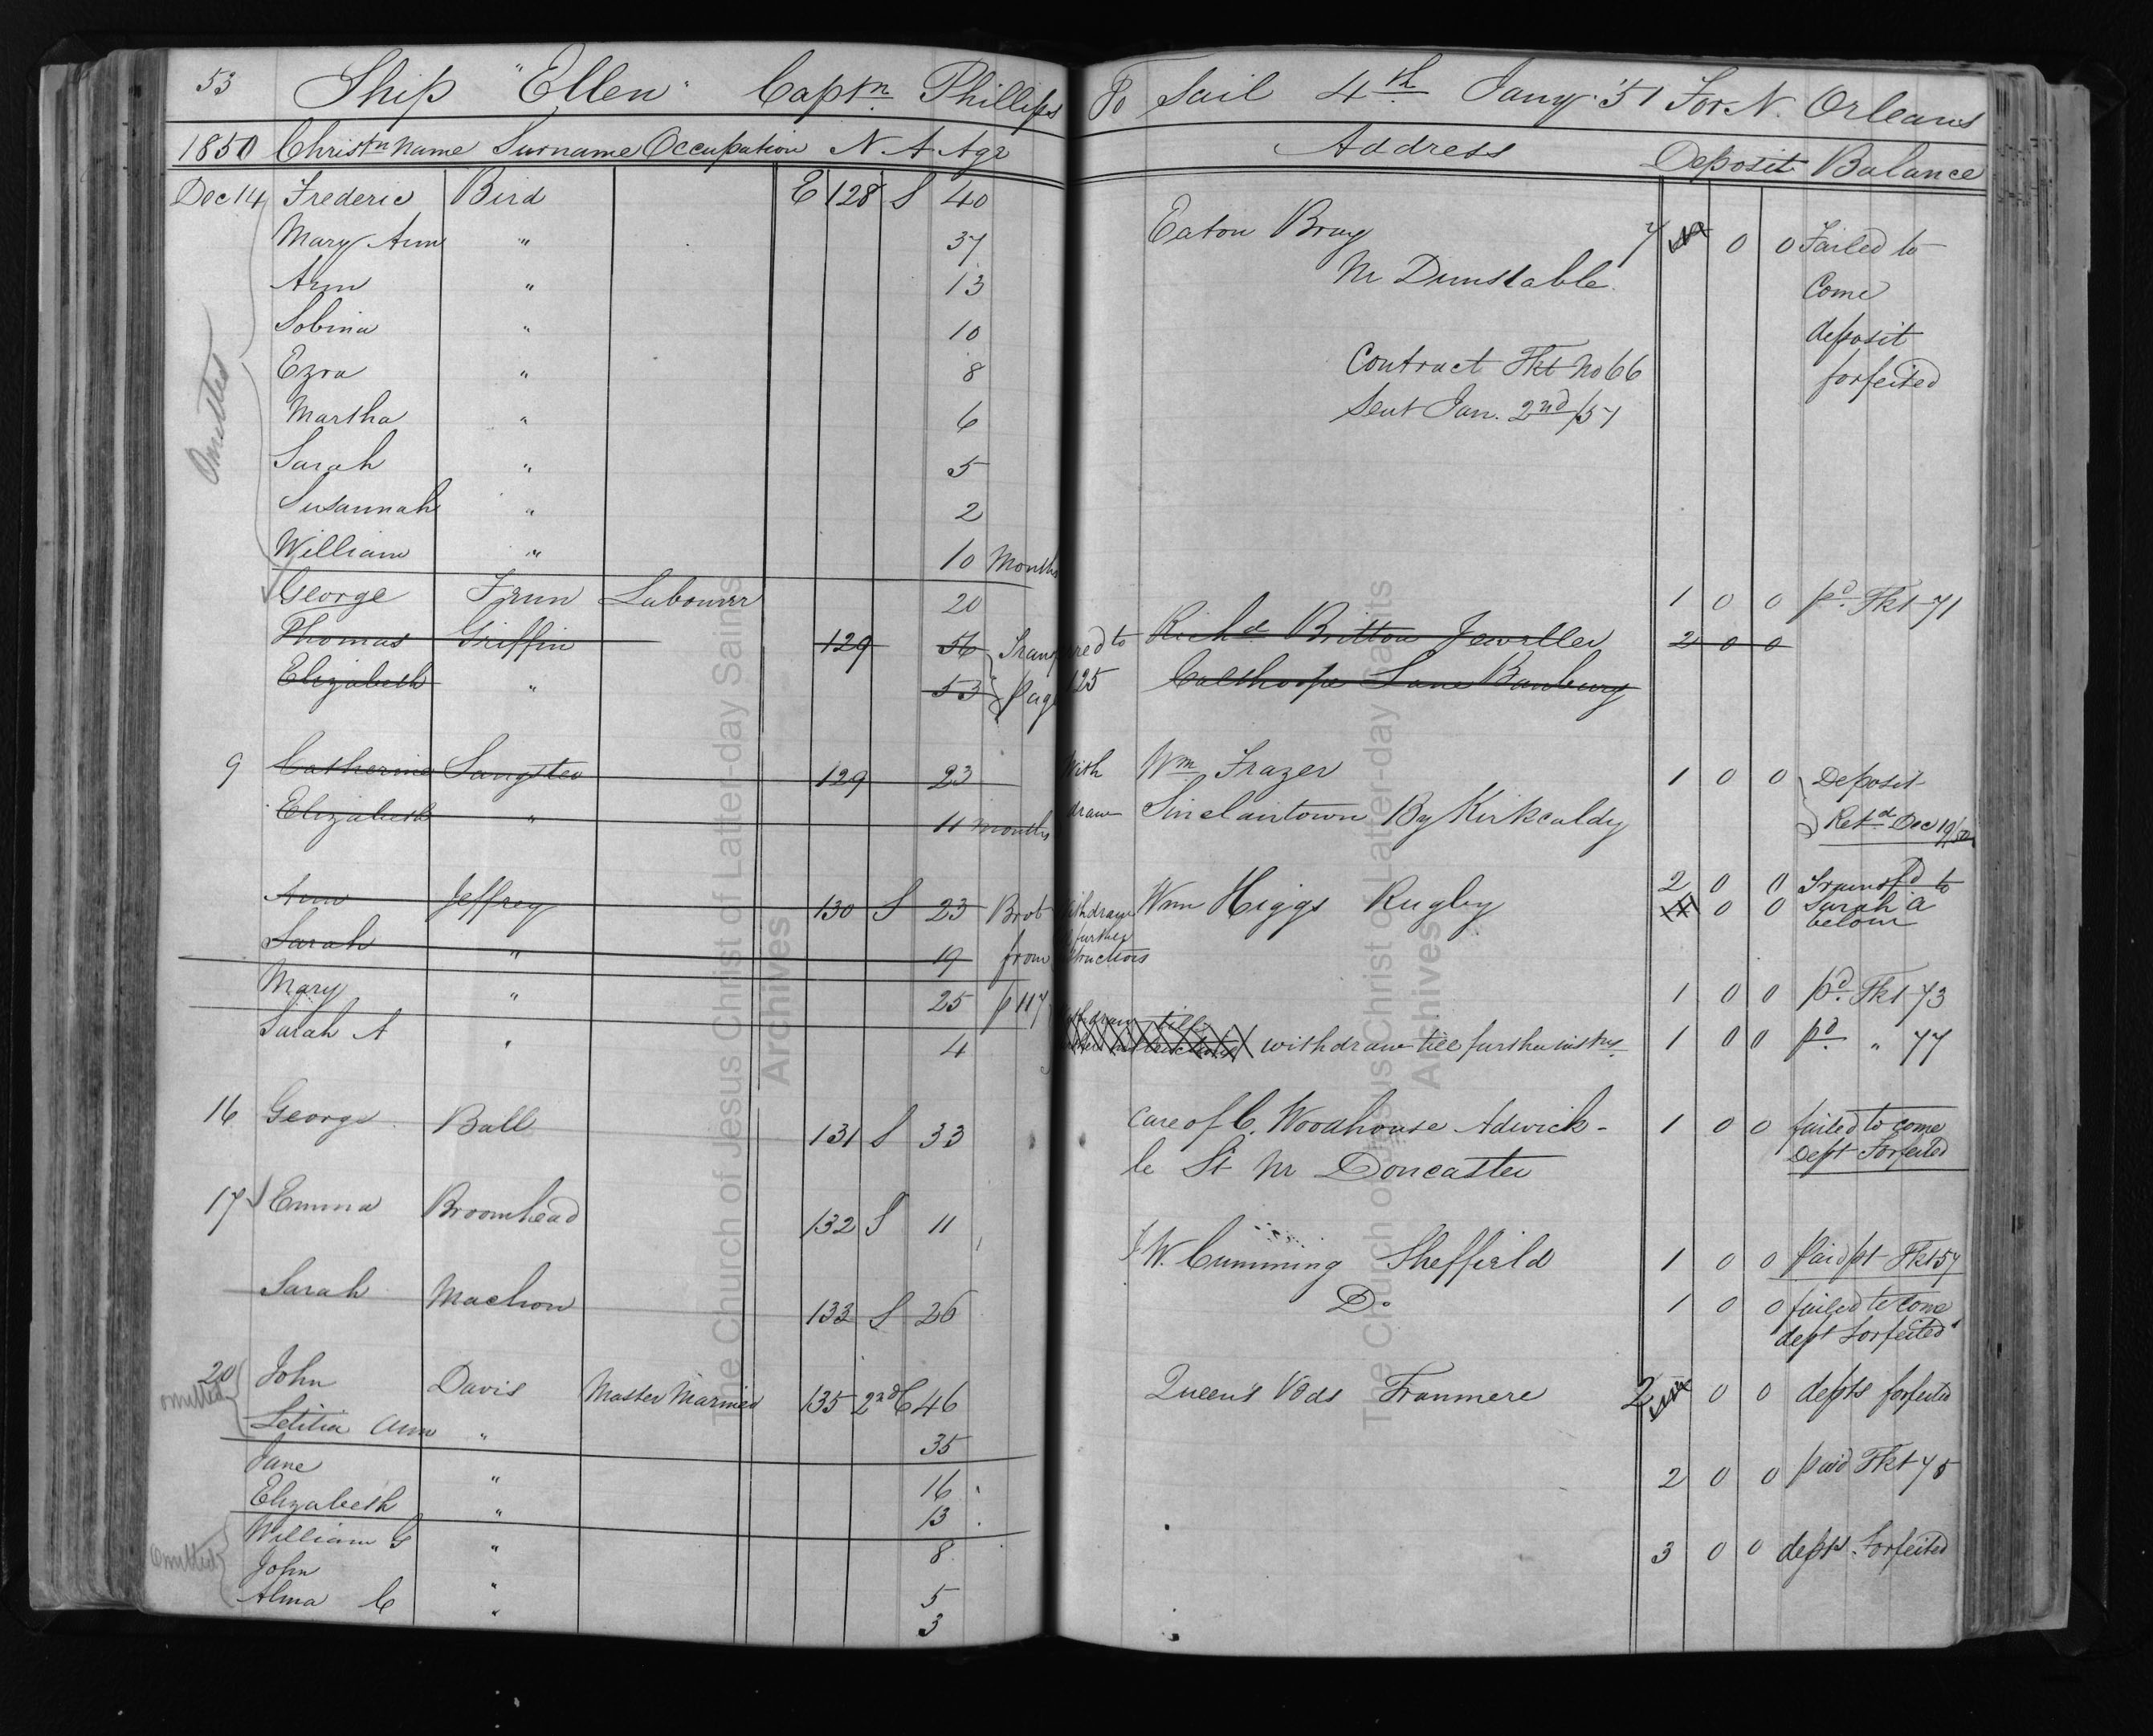 53 Ship "Ellen" Captn Phillips To Sail 4th Jany '51 For N. Orleans
1850 Christn Name Surname Occupation N. A Age Address Deposit Balance
Dec 14 Frederic Bird E 128 S 40
Mary Ann " 37 Eaton Bray 7 0 0 Failed to
Ann " 13 Nr Dunstable. Come
Sobina " 10 deposit
Ezra " 8 Contract Tkt No 66 forfeited
Martha " 6 Sent Jan. 2nd /51
Omitted
Sarah " 5
Susannah " 2
William " 10 Months
George Labourer 20 1 0 0 pd. Tkt 71
Thomas Griffin 129 56 Transferred to Richd Britton Jeweller 2 0 0
Elizabeth " 53 page 125 Calthorpe Lane Banbury
9 Catherine Sangster 129 23 With Wm Frazer 1 0 0 Deposit
Elizabeth " 11 months draw Sinclairtown By Kirkcaldy Retd Dec 19/50
Ann Jeffrey 130 S 23 Brot withdrawn Wm Higgs Rugby 2 0 0 Transfd to
0 0 Sarah A
below
Sarah " 19 from further instructions
Mary " 25 p 117 1 0 0 pd. Tkt 73
Sarah A " 4 withdraw till further instrns. 1 0 0 pd. " 77
16 George Ball 131 S 33 Care of C. Woodhouse Adwick - 1 0 0 failed to come
le St Nr Doncaster Dept Forfeited
17 Emma Broomhead 132 S 11 J W. Cumming Sheffield 1 0 0 Paid pt Tkt 57
Sarah Machon 133 S 26 Do 1 0 0 failed to come
dept forfeited
20 John Davis Master Mariner 135 2nd C 46 Queen's Tranmere 2 0 0 depts forfeited
omitted
Letitia Ann " 35
Jane " 16 2 0 0 paid Tkt 75
Elizabeth " 13
William G " 8 3 0 0 depts. Forfeited
Omitted
John " 5
Alma C " 3
The Church of Jesus Christ of Latter-day Saints
Archives
The Church of Jesus Christ of Latter-day Saints
Archives